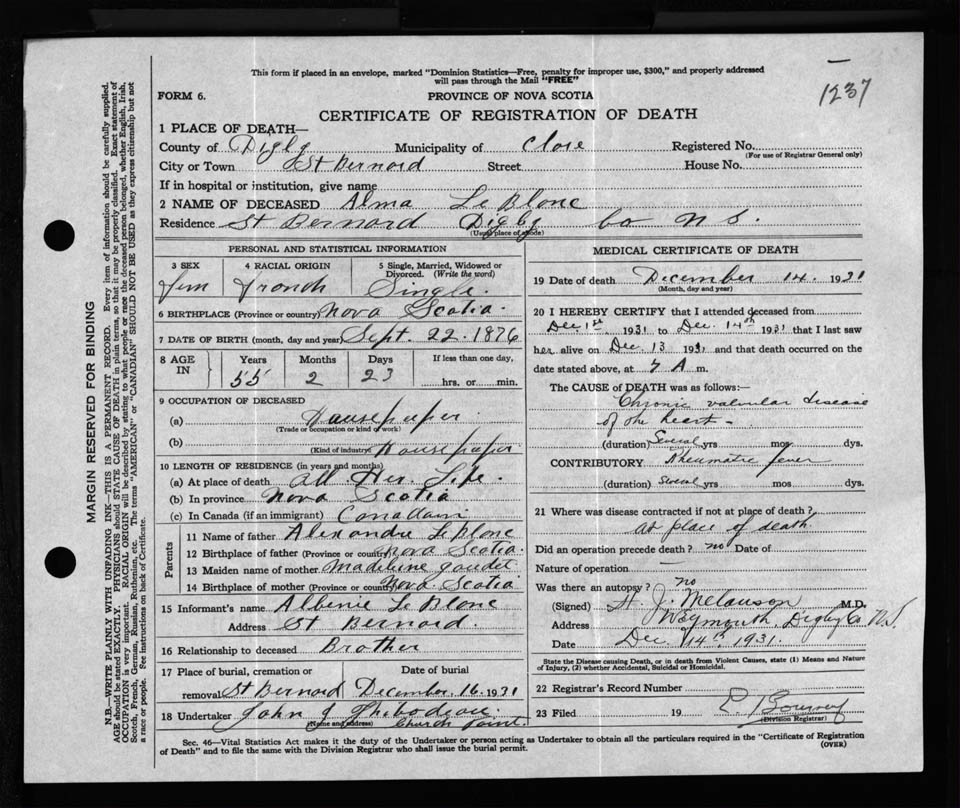 This form if placed in an envelope, marked "Dominion Statistics—Free, penalty for improper use, $300," and properly addressed
will pass through the Mail "FREE"
1237
FORM 6.
PROVINCE OF NOVA SCOTIA
CERTIFICATE OF REGISTRATION OF DEATH
1 PLACE OF DEATH—
County of Digby Municipality of Clare Registered No.
(For use of Registrar General only)
City or Town St Bernard Street House No.
If in hospital or institution, give name
2 NAME OF DECEASED Alma Le Blanc
Residence St Bernard Digby Co N S.
(Usual place of abode)
PERSONAL AND STATISTICAL INFORMATION
3 SEX 4 RACIAL ORIGIN 5 Single, Married, Widowed or
Divorced. (Write the word)
Fem French Single.
6 BIRTHPLACE (Province or country) Nova Scotia.
7 DATE OF BIRTH (month, day and year) Sept. 22. 1876
8 AGE IN Years Months Days If less than one day,
55 2 23 hrs. or min.
9 OCCUPATION OF DECEASED
(a) Housekeeper.
(Trade or occupation or kind of work)
(b) Housekeeper
(Kind of industry)
10 LENGTH OF RESIDENCE (in years and months)
(a) At place of death all Her. Life.
(b) In province Nova Scotia
(c) In Canada (if an immigrant) Canadain
Parents
11 Name of father Alexandre LeBlanc
12 Birthplace of father (Province or country) Nova Scotia.
13 Maiden name of mother Madeline Gaudet
14 Birthplace of mother (Province or country) Nova Scotia
15 Informant's name Albenie Le Blanc
Address St Bernard.
16 Relationship to deceased Brother
17 Place of burial, cremation or Date of burial
removal St Bernard December. 16. 1931
18 Undertaker John J Thibodeau
(Name and address) Church Point.
MEDICAL CERTIFICATE OF DEATH
19 Date of death December 14. 1931
(Month, day and year)
20 I HEREBY CERTIFY that I attended deceased from
Dec 1st 1931 to Dec. 14th 1931 that I last saw
her alive on Dec 13 1931 and that death occurred on the
date stated above, at 7 A m.
The CAUSE OF DEATH was as follows:—
Chronic valvular disease
of the heart -
(duration) Several yrs mos. dys.
CONTRIBUTORY Rheumatic fever
(duration) Several yrs mos dys.
21 Where was disease contracted if not at place of death?
at place of death
Did an operation precede death? no Date of
Nature of operation
Was there an autopsy? no
(Signed) H. J. Melanson M.D.
Address Weymouth, Digby Co N.S.
Date Dec 14th, 1931.
State the Disease causing Death, or in death from Violent Causes, state (1) Means and Nature
of Injury, (2) whether Accidental, Suicidal or Homicidal.
22 Registrar's Record Number
23 Filed 19
(Division Registrar)
Sec. 46—Vital Statistics Act makes it the duty of the Undertaker or person acting as Undertaker to obtain all the particulars required in the "Certificate of Registration
of Death" and to file the same with the Division Registrar who shall issue the burial permit.
(OVER)
MARGIN RESERVED FOR BINDING
N.B.—WRITE PLAINLY WITH UNFADING INK—THIS IS A PERMANENT RECORD. Every item of information should be carefully supplied.
AGE should be stated EXACTLY. PHYSICIANS should STATE CAUSE OF DEATH in plain terms, so that it may be properly classified. Exact statement of
OCCUPATION is very important. RACIAL ORIGIN will be described by stating to what people or race the deceased person belonged, whether English, Irish,
Scotch, French, German, Russian, Ruthenian, etc. The terms "AMERICAN" or "CANADIAN" SHOULD NOT BE USED as they express citizenship but not
a race or people. See instructions on back of Certificate.